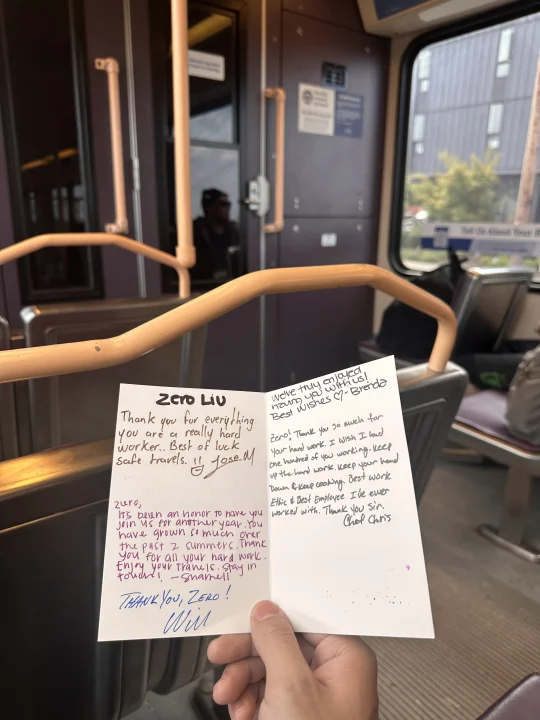 Zero Liu
Thank you for everything
you are a really hard
worker.. Best of luck
safe travels. Jose M
Zero,
It's been an honor to have you
join us for another year. You
have grown so much over
the past 2 summers. Thank
you for all your hard work.
Enjoy your travels. Stay in
touch! - Sharnell
THANK YOU, ZERO!
Will
We've truly enjoyed
having you with us!
Best Wishes ♡- Brenda
Zero! Thank you so much for
your hard work. I wish I had
one hundred of you working. Keep
up the hard work. Keep your hand
Down & Keep cooking. Best work
Ethic & Best Employee I've ever
worked with. Thank You Sir.
Chef Chris
Tell Us About Your R